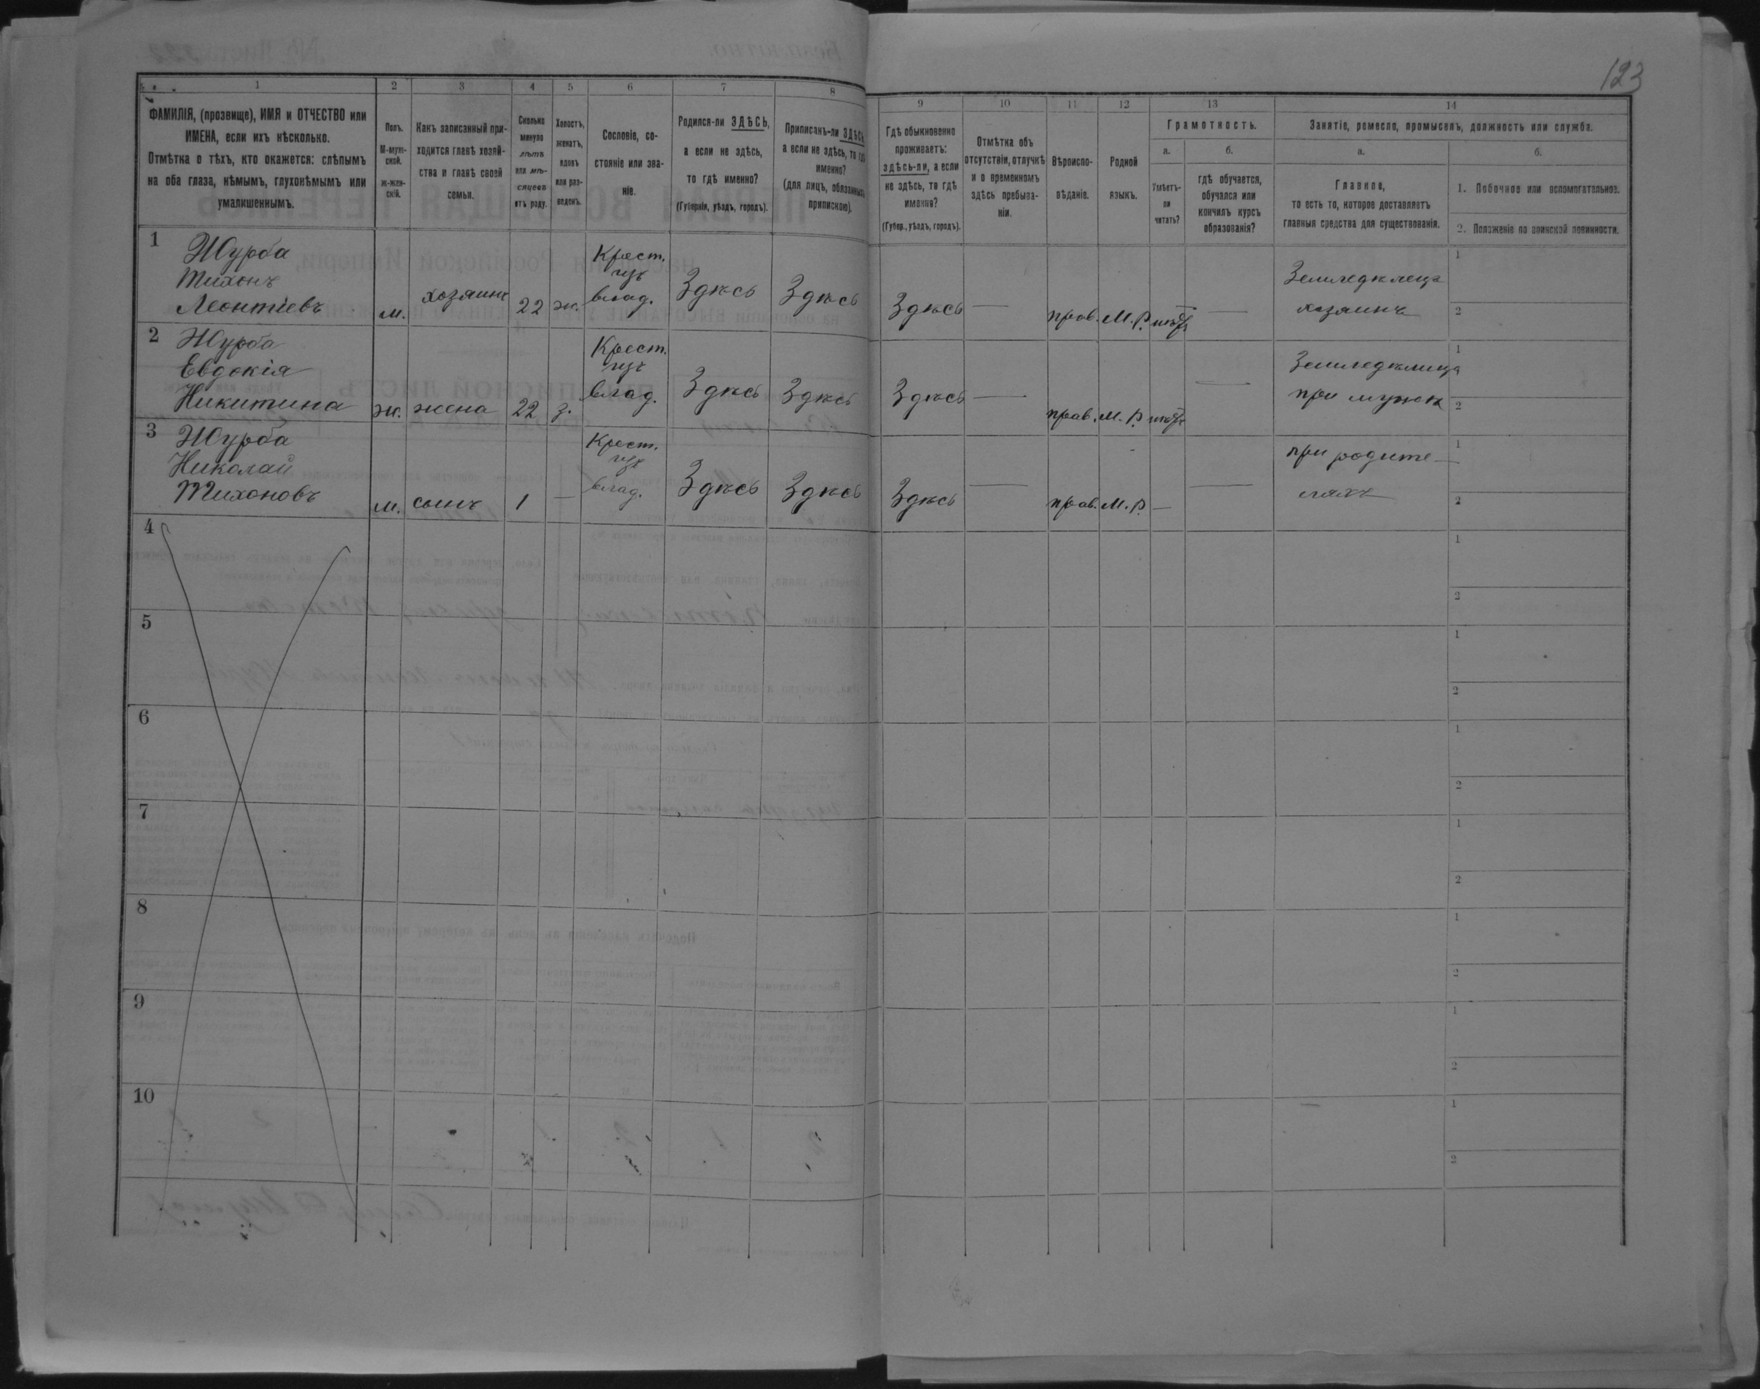 123
1
2
3
4
5
6
7
8
9
10
11
12
13
14
ФАМИЛІЯ, (прозвище), ИМЯ и ОТЧЕСТВО или
ИМЕНА, если ихъ нѣсколько.
Отмѣтка о тѣхъ, кто окажется: слѣпымъ
на оба глаза, нѣмымъ, глухонѣмымъ или
умалишеннымъ.
Полъ.
М-муж-
ской.
ж-жен-
скій.
Какъ записанный при-
ходится главѣ хозяй-
ства и главѣ своей
семьи.
Сколько
минуло
лѣтъ
или мѣ-
сяцевъ
отъ роду.
Холостъ,
женатъ,
вдовъ
или раз-
веденъ.
Сословіе, со-
стояніе или зва-
ніе.
Родился-ли ЗДѢСЬ,
а если не здѣсь,
то гдѣ именно?
(Губернія, уѣздъ, городъ).
Приписанъ-ли ЗДѢСЬ,
а если не здѣсь, то гдѣ
именно?
(для лицъ, обязанныхъ
припискою).
Гдѣ обыкновенно
проживаетъ:
здѣсь-ли, а если
не здѣсь, то гдѣ
именно?
(Губер., уѣздъ, городъ).
Отмѣтка объ
отсутствіи, отлучкѣ
и о временномъ
здѣсь пребыва-
ніи.
Вѣроиспо-
вѣданіе.
Родной
языкъ.
Грамотность.
а.
Умѣетъ-
ли
читать?
б.
гдѣ обучается,
обучался или
кончилъ курсъ
образованія?
Занятіе, ремесло, промыселъ, должность или служба.
а.
Главное,
то есть то, которое доставляетъ
главныя средства для существованія.
б.
1. Побочное или вспомогательное.
2. Положеніе по воинской повинности.
1
Журба
Тихонъ
Леонтіевъ
м.
хозяинъ
22
ж.
Крест.
влад.
Здѣсь
Здѣсь
Здѣсь
—
прав.
М. Р.
—
Земледѣлецъ
хозяинъ
1
2
2
Журба
Евдокія
Никитина
ж.
жена
22
з.
Крест.
влад.
Здѣсь
Здѣсь
Здѣсь
—
прав.
М. Р.
—
при мужѣ
1
2
3
Журба
Николай
Тихоновъ
м.
сынъ
1
—
Крест.
влад.
Здѣсь
Здѣсь
Здѣсь
—
прав.
М. Р.
—
—
при родите-
ляхъ
1
2
4
1
2
5
1
2
6
1
2
7
1
2
8
1
2
9
1
2
10
1
2